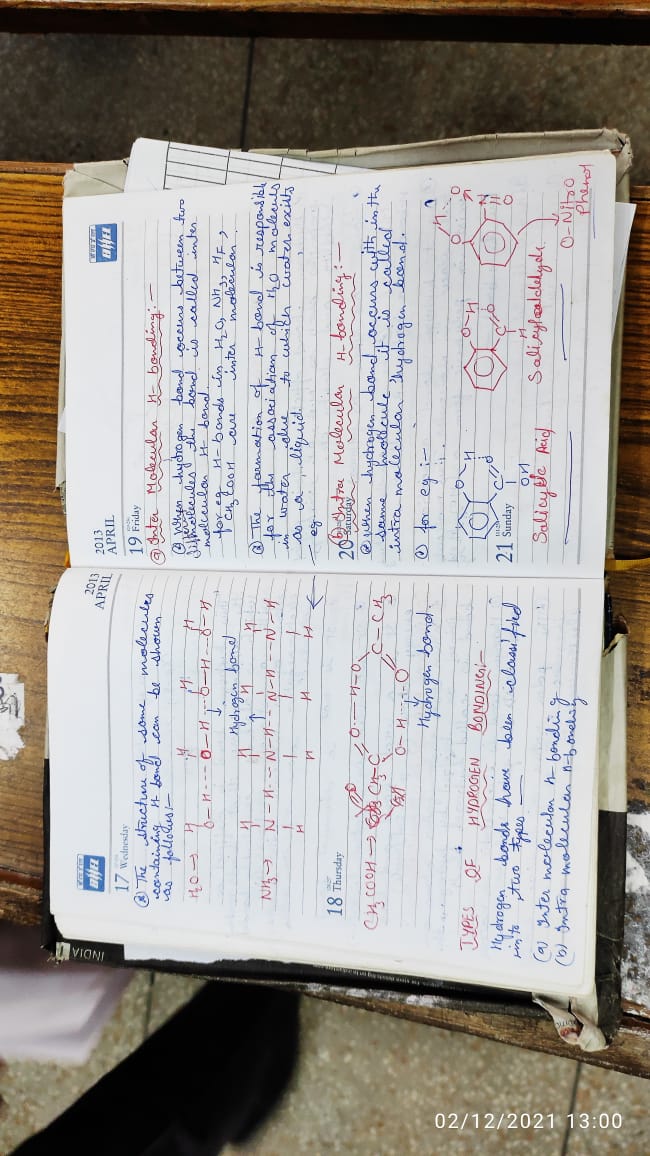 2013
APRIL
17 Wednesday
@ The structure of some molecules
containing H bond can be shown
as follows:-
H₂O → H H H H
O-H---O-H...O-H...O-H
↓
Hydrogen bond
NH₃ → H H H H
N-H---N-H...N-H...N-H
H H H H
18 Thursday
CH₃COOH → CH₃-C O---H-O C-CH₃
O-H...O
Hydrogen bond.
TYPES OF HYDROGEN BONDING:-
Hydrogen bonds have been classified
into two types
(a) Inter molecular H-bonding
(b) Intra molecular H-bonding
INDIA
2013
APRIL
19 Friday
@ Inter Molecular H-bonding:-
@ When hydrogen bond occurs between two
molecules, the bond is called inter
molecular H-bond.
for eg H-bonds in H₂O, NH₃, HF,
CH₃COOH are inter molecular.
@ The formation of H-bond is responsible
for the association of H₂O molecules
in water due to which water exists
as a liquid.
eg.
20 Saturday
(b) Intra Molecular H-bonding:-
@ When hydrogen bond occurs with in the
same molecule, it is called
intra molecular hydrogen bond.
@ for eg:-
O H O-H O H O
C O C O N O
OH H
21 Sunday
Salicylic Acid Salicylaldehyde
O-Nitro
Phenol
02/12/2021 13:00